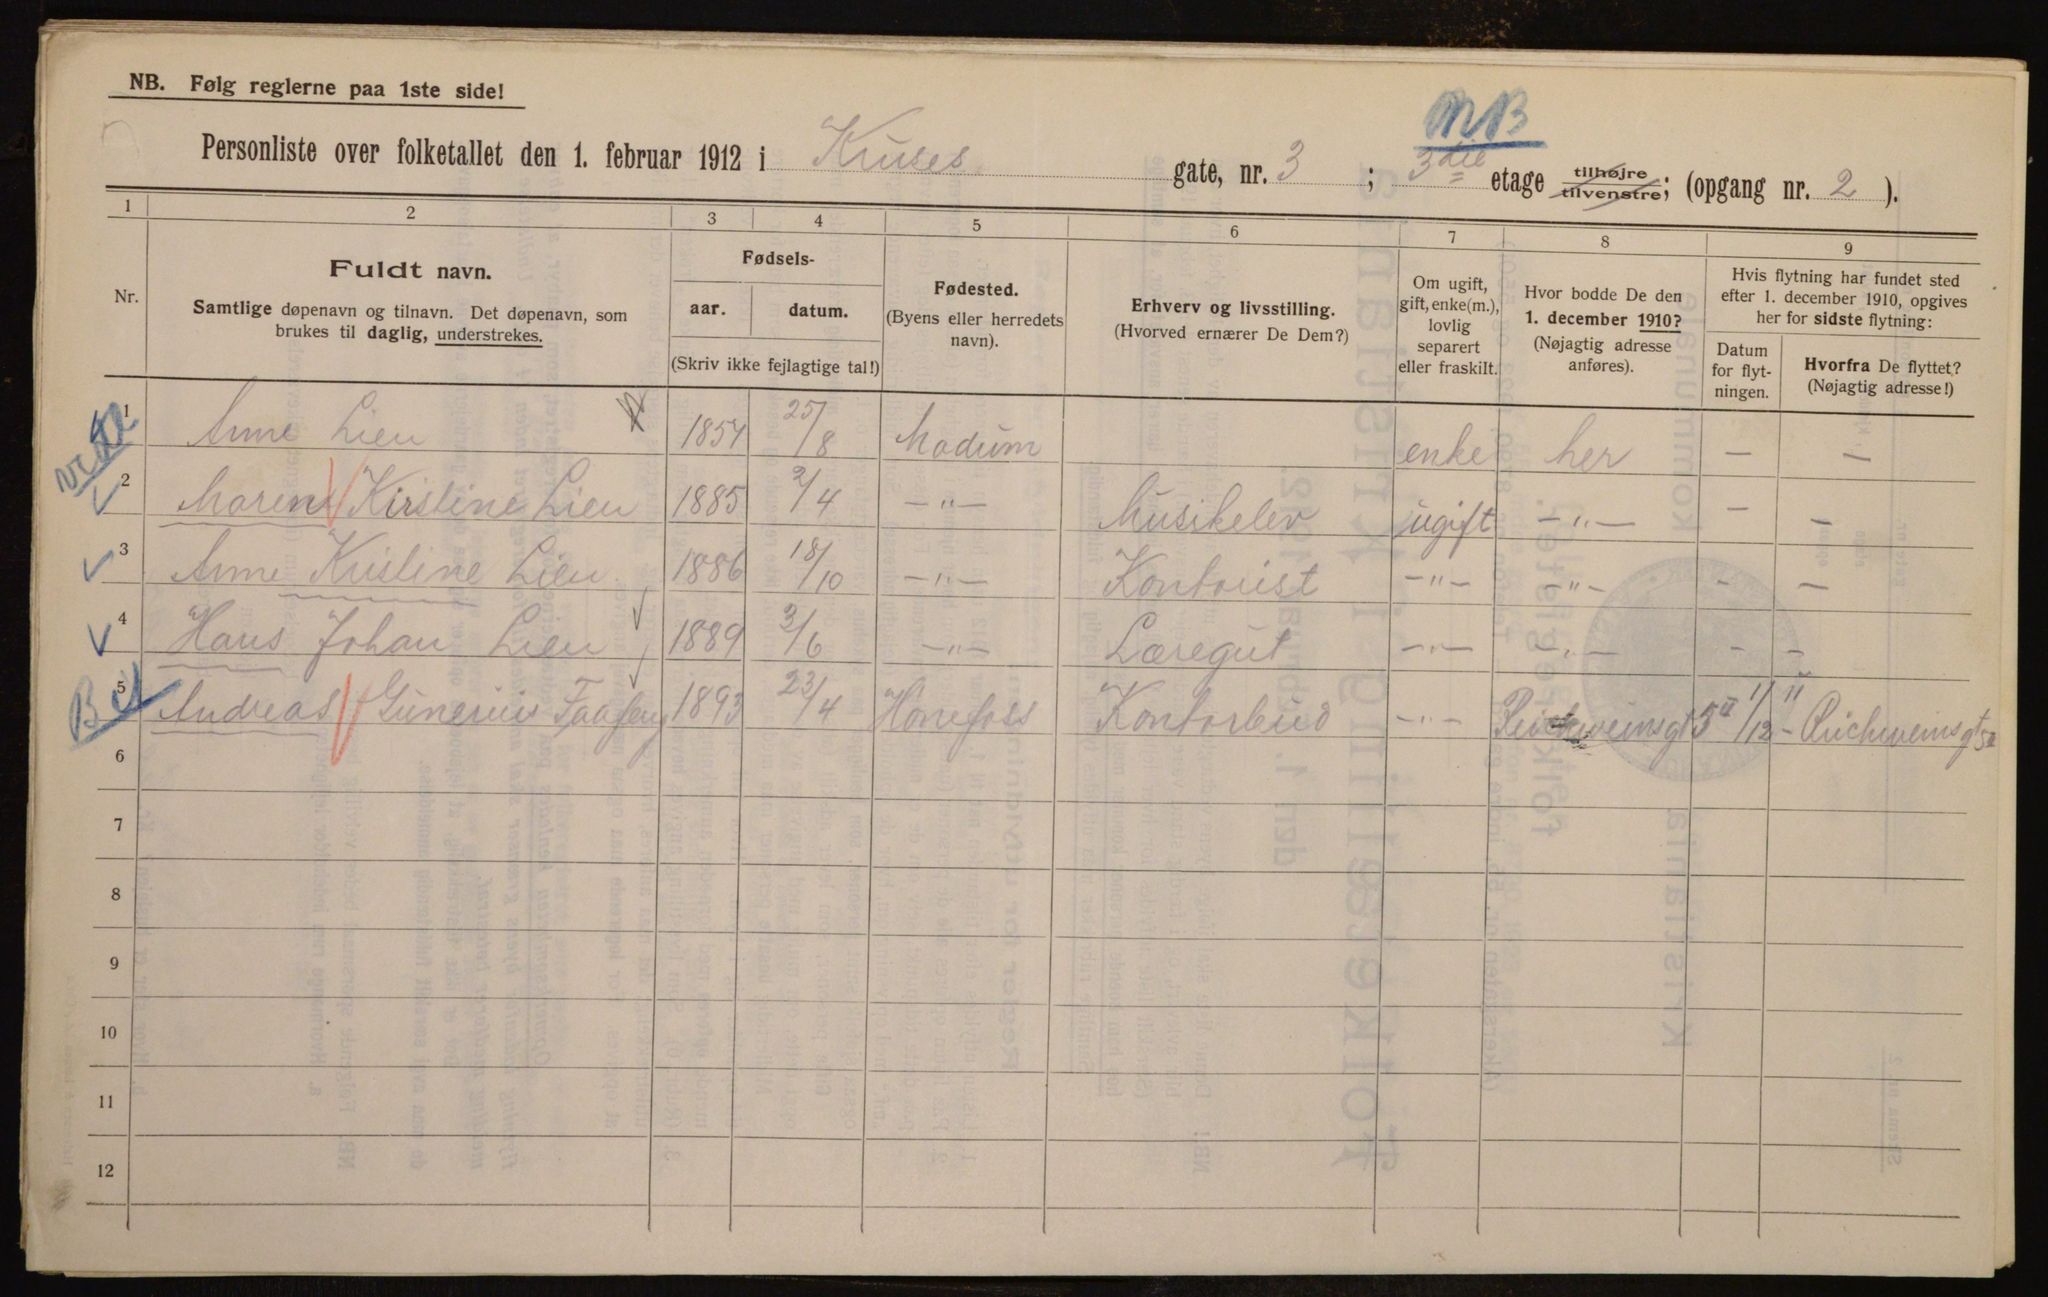 NB. Følg reglerne paa 1ste side!
NB
Personliste over folketallet den 1. februar 1912 i Kruses gate, nr. 3 ; 3die etage tilhøjre tilvenstre; (opgang nr. 2 ).
1 2 3 4 5 6 7 8 9
Nr.
Fuldt navn.
Samtlige døpenavn og tilnavn. Det døpenavn, som
brukes til daglig, understrekes.
Fødsels-
aar. datum.
(Skriv ikke fejlagtige tal!)
Fødested.
(Byens eller herredets
navn).
Erhverv og livsstilling.
(Hvorved ernærer De Dem?)
Om ugift,
gift, enke(m.),
lovlig
separert
eller fraskilt.
Hvor bodde De den
1. december 1910?
(Nøjagtig adresse
anføres).
Hvis flytning har fundet sted
efter 1. december 1910, opgives
her for sidste flytning:
Datum
for flyt-
ningen.
Hvorfra De flyttet?
(Nøjagtig adresse!)
1 Anne Lien 1854 25/8 Modum enke her — —
2 Maren Kirstine Lien 1885 2/4 —"— Musikelev ugift —"— — —
3 Anne Kristine Lien 1886 18/10 —"— Kontorist —"— —"— — —
4 Hans Johan Lien 1889 3/6 —"— Læregut —"— —"— — —
5 Andreas Gunerius 1893 23/4 Hønefoss Kontorbud —"— 5 II 1/12 11 Reichweinsgt
6
7
8
9
10
11
12